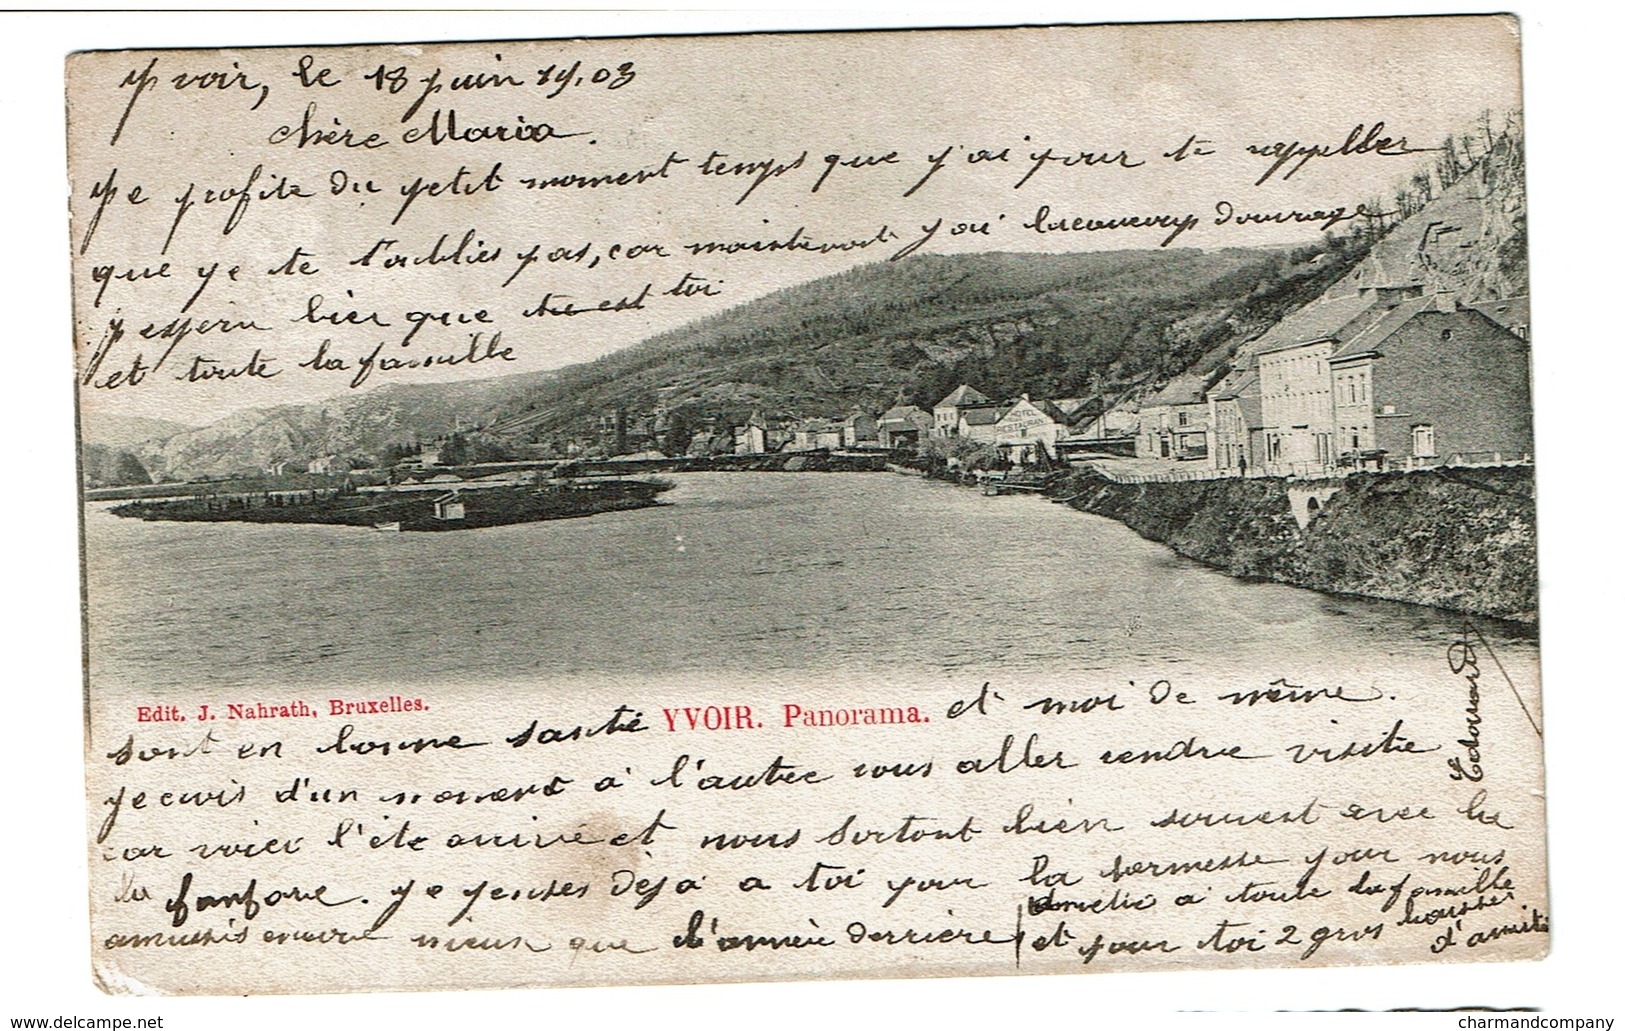 Yvoir, le 18 juin 1903
chère Maria.
Je profite du petit moment temps que j'ai pour te rappeller
que je te t'oublies pas, car maintenant j'ai beaucoup d'ouvrage
j'espère bien que tu est toi
et toute la famille
Edit. J. Nahrath, Bruxelles.
YVOIR. Panorama.
sont en bonne santé et moi de même.
Je crois d'un moment a l'autre vous aller rendre visite
car voici l'éte arrivé et nous sortont bien souvent avec la
la fanfare. Je penses déja a toi pour la kermesse pour nous
amusés encore mieux que l'année derrière
a toute la famille
et pour toi 2 gros baisser
d'amitié
Edouard
delcampe.net
charmandcompany